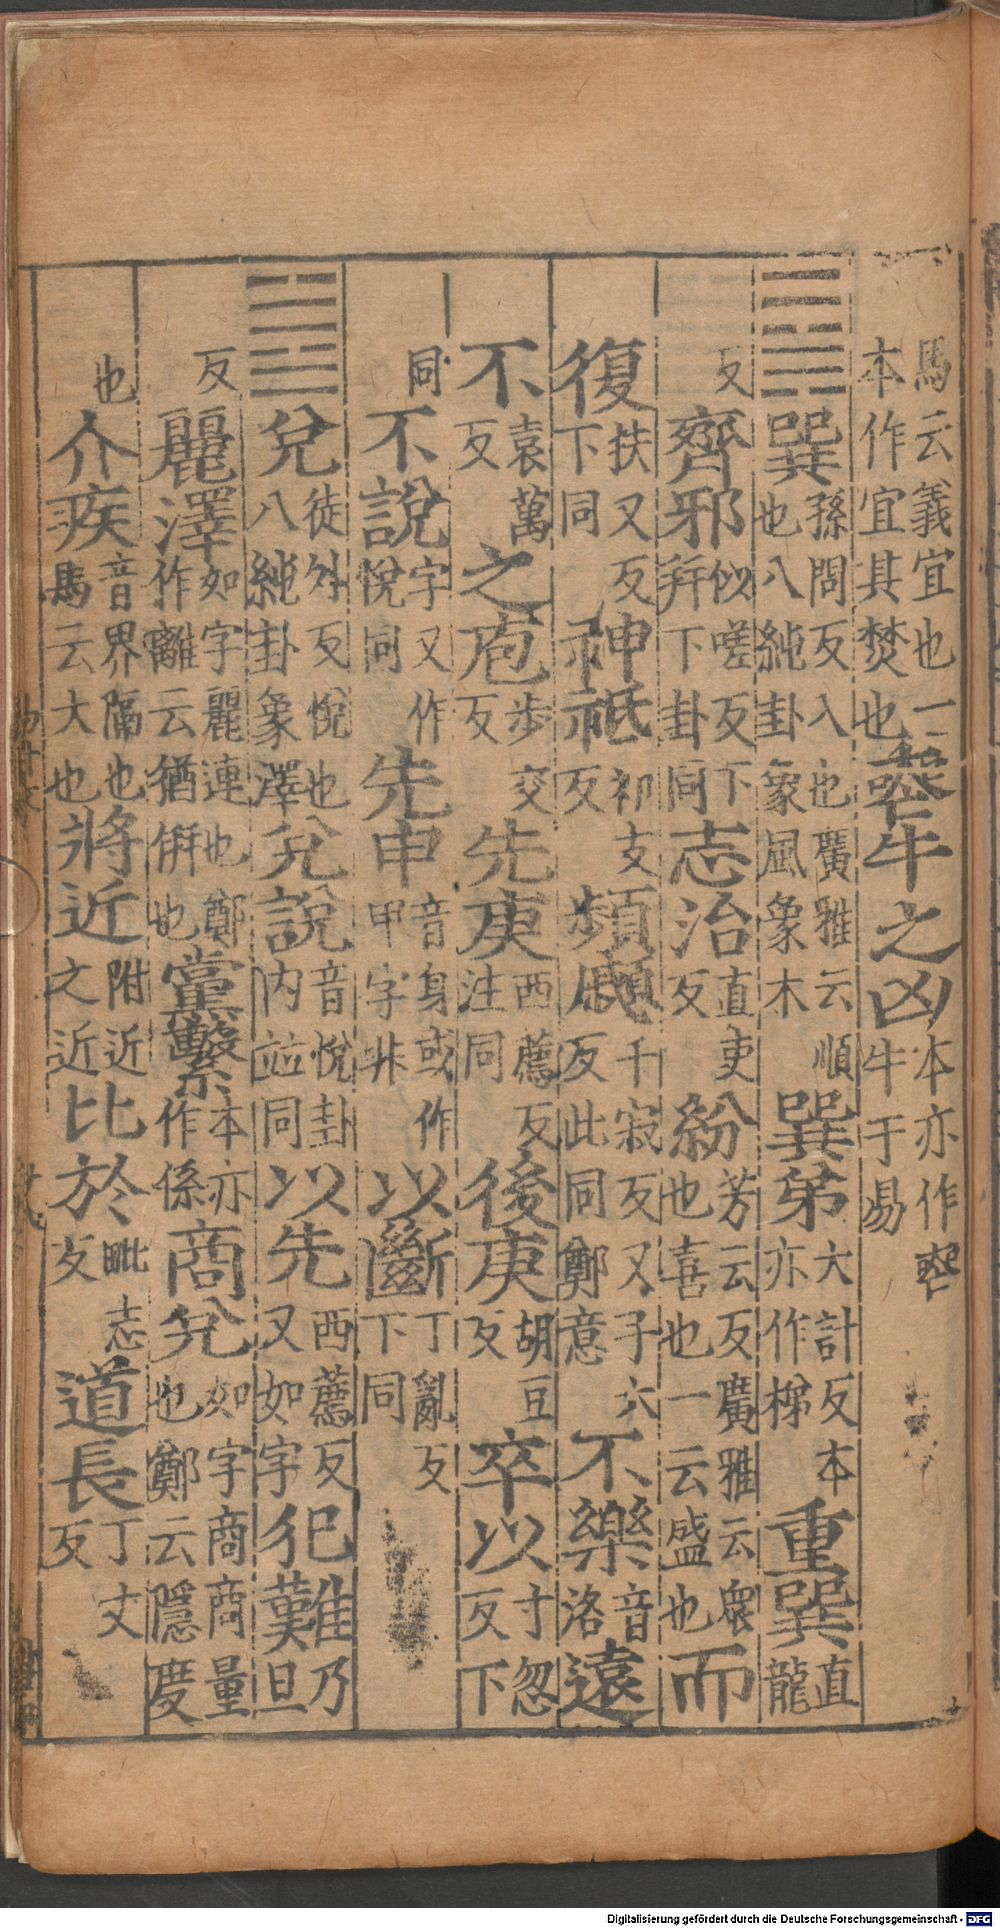 馬云義宜也一本作宜其焚也 喪牛之凶 本亦作喪牛于易
䷸巽 孫問反入也廣雅云順也八純卦象風象木 巽弟 大計反本亦作梯 重巽 直龍
反 齊邪 似嗟反下卦同 志治 直吏反 紛 芳云反廣雅云衆也喜也一云盛也 而
復 扶又反下同 神祇 祁支反 頻顣 千寂反又子六反此同鄭意 不樂 音洛 遠
不 袁萬反 之庖 步交反 先庚 西薦反注同 後庚 胡豆反 卒以 寸忽反下
同 不說 字又作悅同 先申 音身或作甲字非 以斷 丁亂反下同
䷹兌 徒外反悅也八純卦象澤 兌說 音悅卦内竝同 以先 西薦反又如字 犯難 乃旦
反 麗澤 如字麗連也鄭作離云猶倂也 黨繫 本亦作係 商兌 如字商商量也鄭云隱度
也 介疾 音界隔也馬云大也 將近 附近之近 比於 毗志反 道長 丁丈反
Digitalisierung gefördert durch die Deutsche Forschungsgemeinschaft - DFG